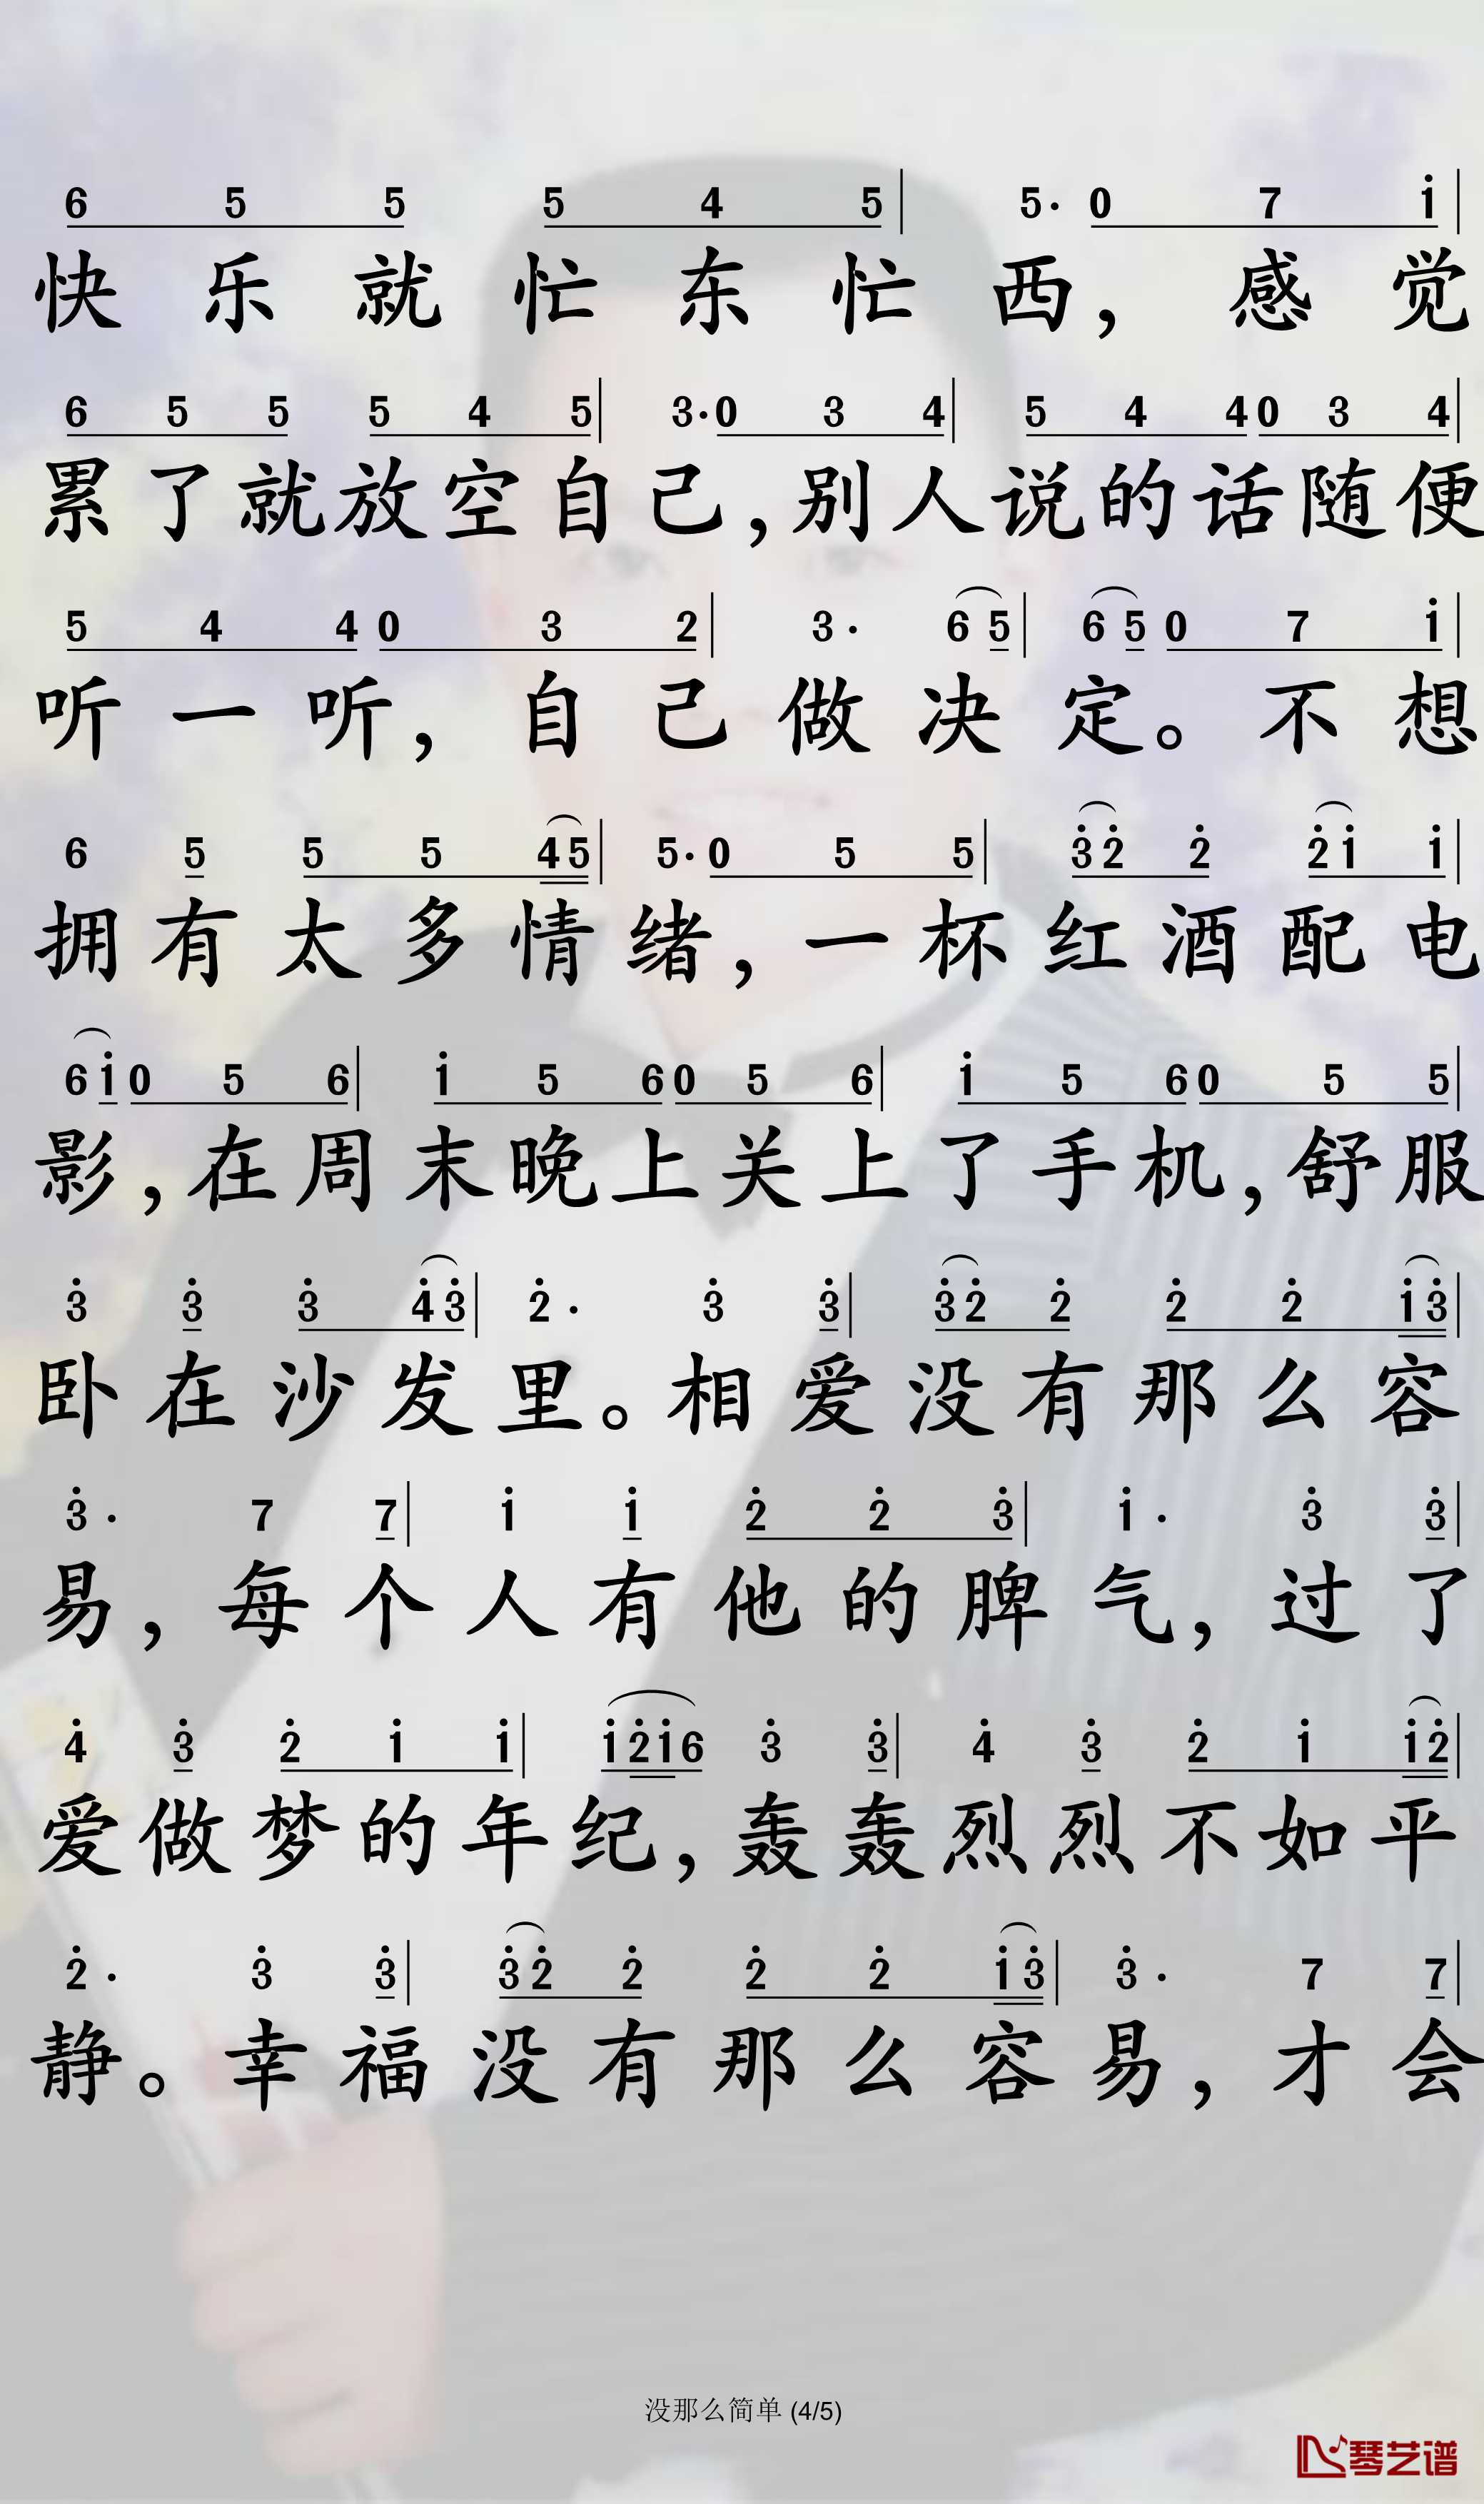 6 5 5 5 4 5 | 5· 0 7 i |
快乐就忙东忙西，感觉
6 5 5 5 4 5 | 3· 0 3 4 | 5 4 4 0 3 4 |
累了就放空自己，别人说的话随便
5 4 4 0 3 2 | 3· 6 5 | 6 5 0 7 i |
听一听，自己做决定。不想
6 5 5 5 4 5 | 5· 0 5 5 | 3̇ 2̇ 2̇ 2̇ i i |
拥有太多情绪，一杯红酒配电
6 i 0 5 6 | i 5 6 0 5 6 | i 5 6 0 5 5 |
影，在周末晚上关上了手机，舒服
3̇ 3̇ 3̇ 4̇ 3̇ | 2̇· 3̇ 3̇ | 3̇ 2̇ 2̇ 2̇ 2̇ i 3̇ |
卧在沙发里。相爱没有那么容
3̇· 7 7 | i i 2̇ 2̇ 3̇ | i· 3̇ 3̇ |
易，每个人有他的脾气，过了
4̇ 3̇ 2̇ i i | i 2̇ i 6 3̇ 3̇ | 4̇ 3̇ 2̇ i i 2̇ |
爱做梦的年纪，轰轰烈烈不如平
2̇· 3̇ 3̇ | 3̇ 2̇ 2̇ 2̇ 2̇ i 3̇ | 3̇· 7 7 |
静。幸福没有那么容易，才会
没那么简单 (4/5)
琴艺谱